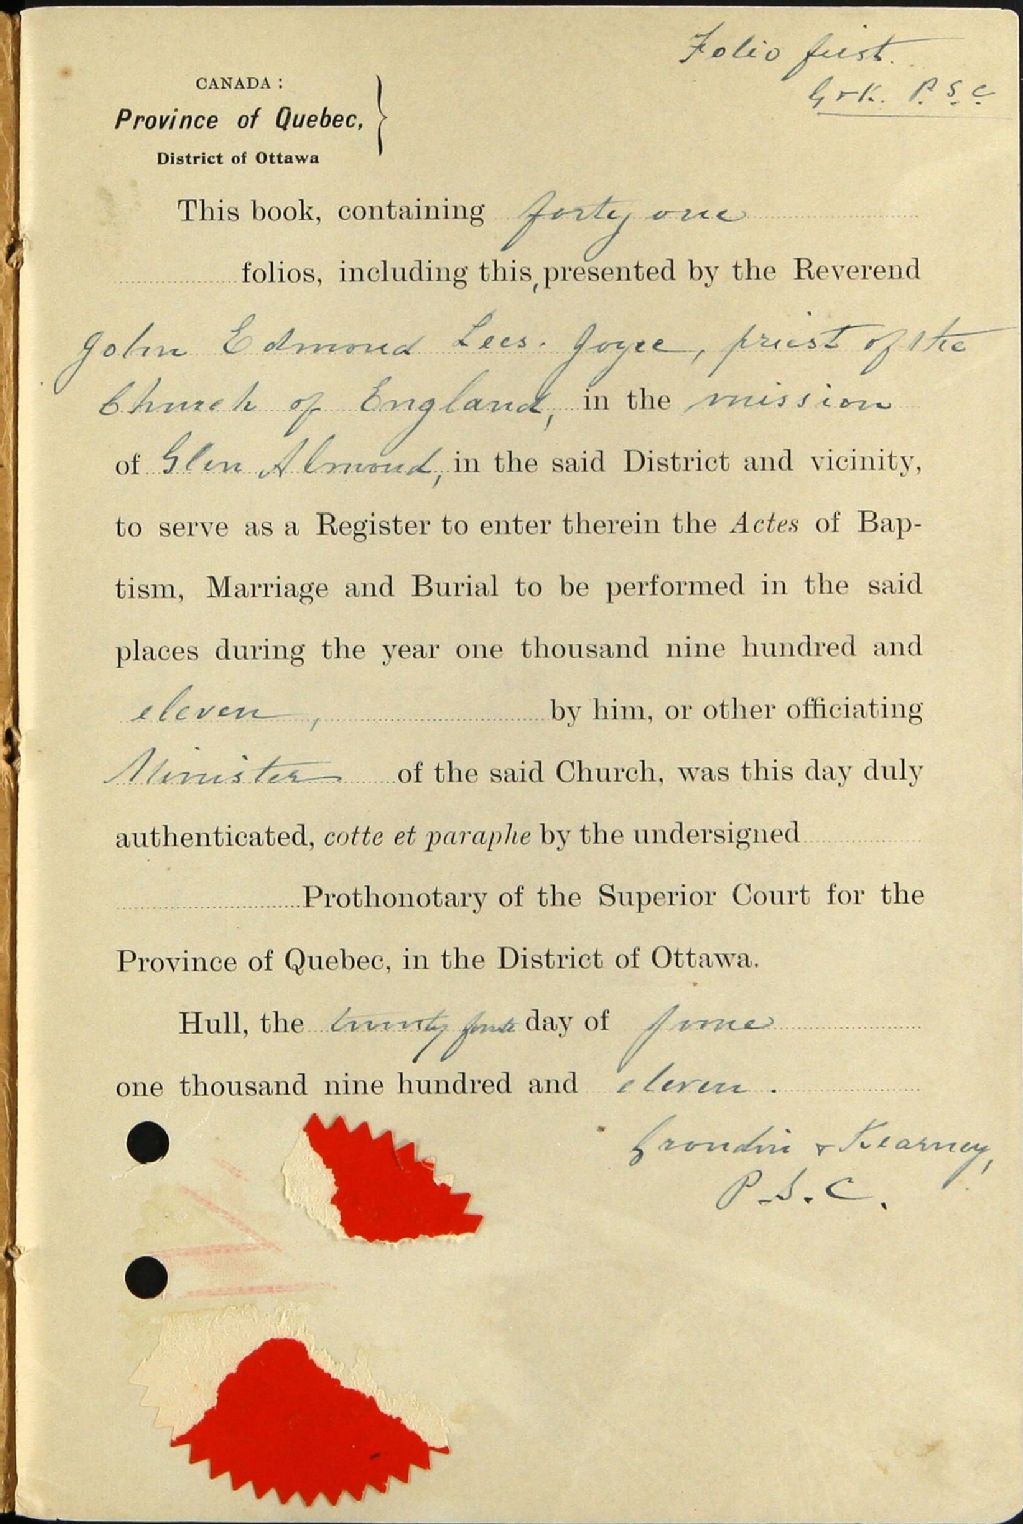 Folio first.
G & K. P. S. C.
CANADA :
Province of Quebec,
District of Ottawa
This book, containing forty one
folios, including this, presented by the Reverend
John Edmond Lees. Joyce, priest of the
Church of England, in the mission
of Glen Almond, in the said District and vicinity,
to serve as a Register to enter therein the Actes of Bap-
tism, Marriage and Burial to be performed in the said
places during the year one thousand nine hundred and
eleven, by him, or other officiating
Minister of the said Church, was this day duly
authenticated, cotte et paraphe by the undersigned
Prothonotary of the Superior Court for the
Province of Quebec, in the District of Ottawa.
Hull, the twenty day of June
one thousand nine hundred and eleven.
Grondin & Kearney,
P. S. C.